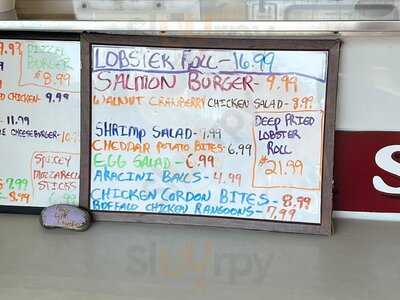 PICKLE
BURGER
$8.99
9.93
D CHICKEN- 9.99
- 11.99
CHEESEBURGER-10.
SPICY
MOZZARELLA
STICKS
7.99
8.99
LOBSTER ROLL - 16.99
SALMON BURGER- 9.99
WALNUT CRANBERRY CHICKEN SALAD- 8.99
SHRIMP SALAD- 7.99
CHEDDAR POTATO BITES- 6.99
EGG SALAD- 6.99
ARACINI BALLS- 4.99
CHICKEN CORDON BITES- 8.99
BUFFALO CHICKEN RANGOONS- 7.99
DEEP FRIED
LOBSTER
ROLL
$21.99
S